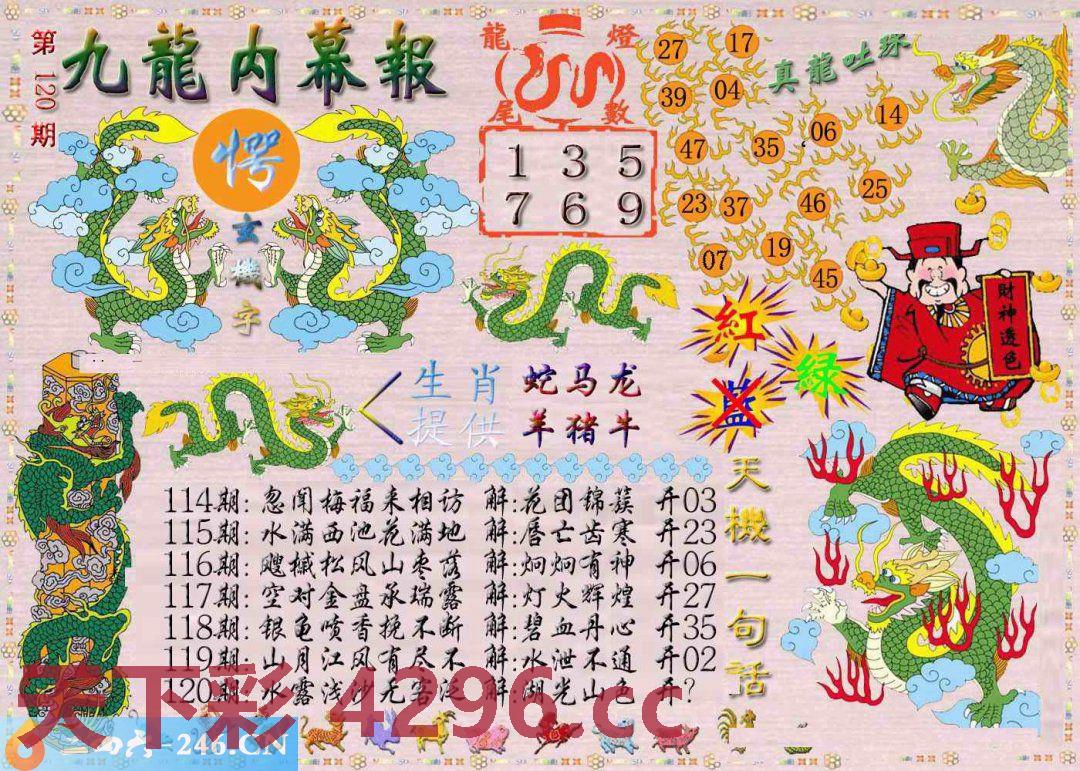 第120期
九龍内幕報
愕
玄機字
龍燈尾數
1 3 5
7 6 9
27 17
39 04
真龍吐珠
47 35 06 14
23 37 46 25
07 19 45
財神透色
紅
綠
藍
生肖提供
蛇马龙
羊猪牛
天機一句話
114期: 忽闻梅福来相访 解:花团锦簇 开03
115期: 水满西池花满地 解:唇亡齿寒 开23
116期: 飕槭松风山枣落 解:炯炯有神 开06
117期: 空对金盘承瑞露 解:灯火辉煌 开27
118期: 银龟喷香挽不断 解:碧血丹心 开35
119期: 山月江风有尽不 解:水泄不通 开02
120期: 水露浅沙无客泛 解:湖光山色 开?
天下彩 4296.cc
=246.CN